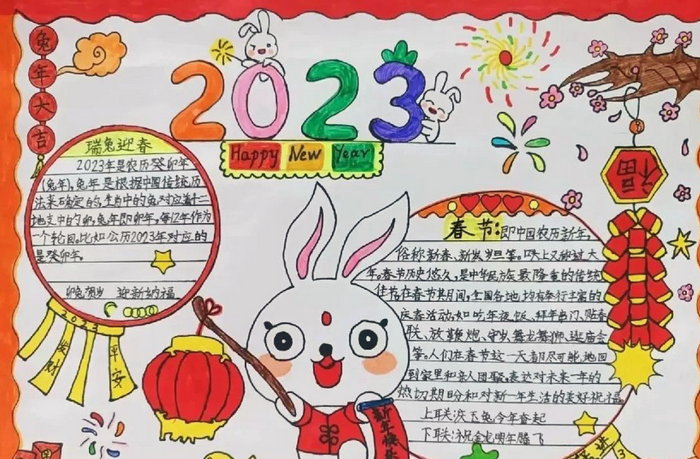 兔年大吉
2023
Happy New Year
瑞兔迎春
2023年是农历癸卯年
(兔年),兔年是根据中国传统历
法来确定的,生肖中的兔对应着十二
地支中的卯,兔年即卯年,每12年作为
一个轮回,比如公历2023年对应的
是癸卯年。
卯兔贺岁 迎新纳福
2023
发财
平安
福
春节:即中国农历新年,
俗称新春、新岁、岁旦等。口头上又称过大
年。春节历史悠久,是中华民族最隆重的传统
佳节在春节其月间,全国各地均有举行丰富的
庆春活动,如吃年夜饭、拜年串门、贴春
联、放鞭炮、守岁、舞龙舞狮、逛庙会
等。人们在春节这一天都尽可能地回
到家里和亲人团聚,表达对未来一年的
热切期盼和对新一年生活的美好祝福
上联:浜玉兔今年奋起
下联:祝金龙明年腾飞
新年快乐